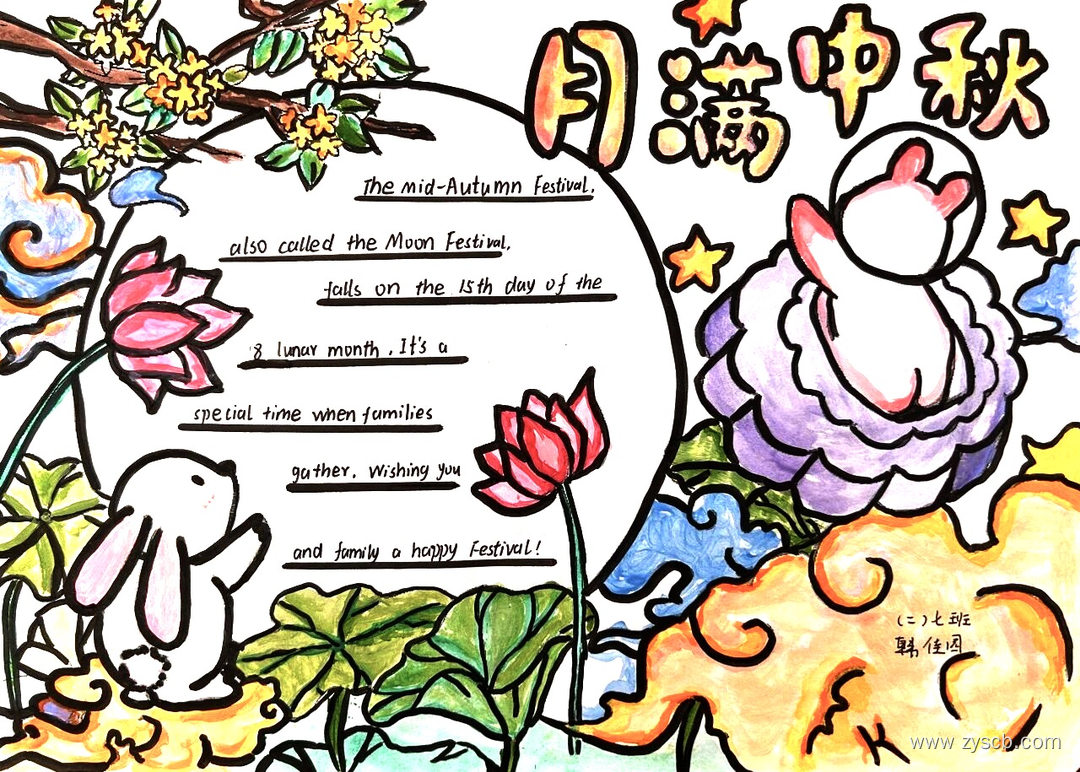 月满中秋
The mid-Autumn Festival,
also called the Moon Festival,
falls on the 15th day of the
8 lunar month. It's a
special time when families
gather. Wishing you
and family a happy Festival!
(二)七班
韩佳囡
www.zyscb.com